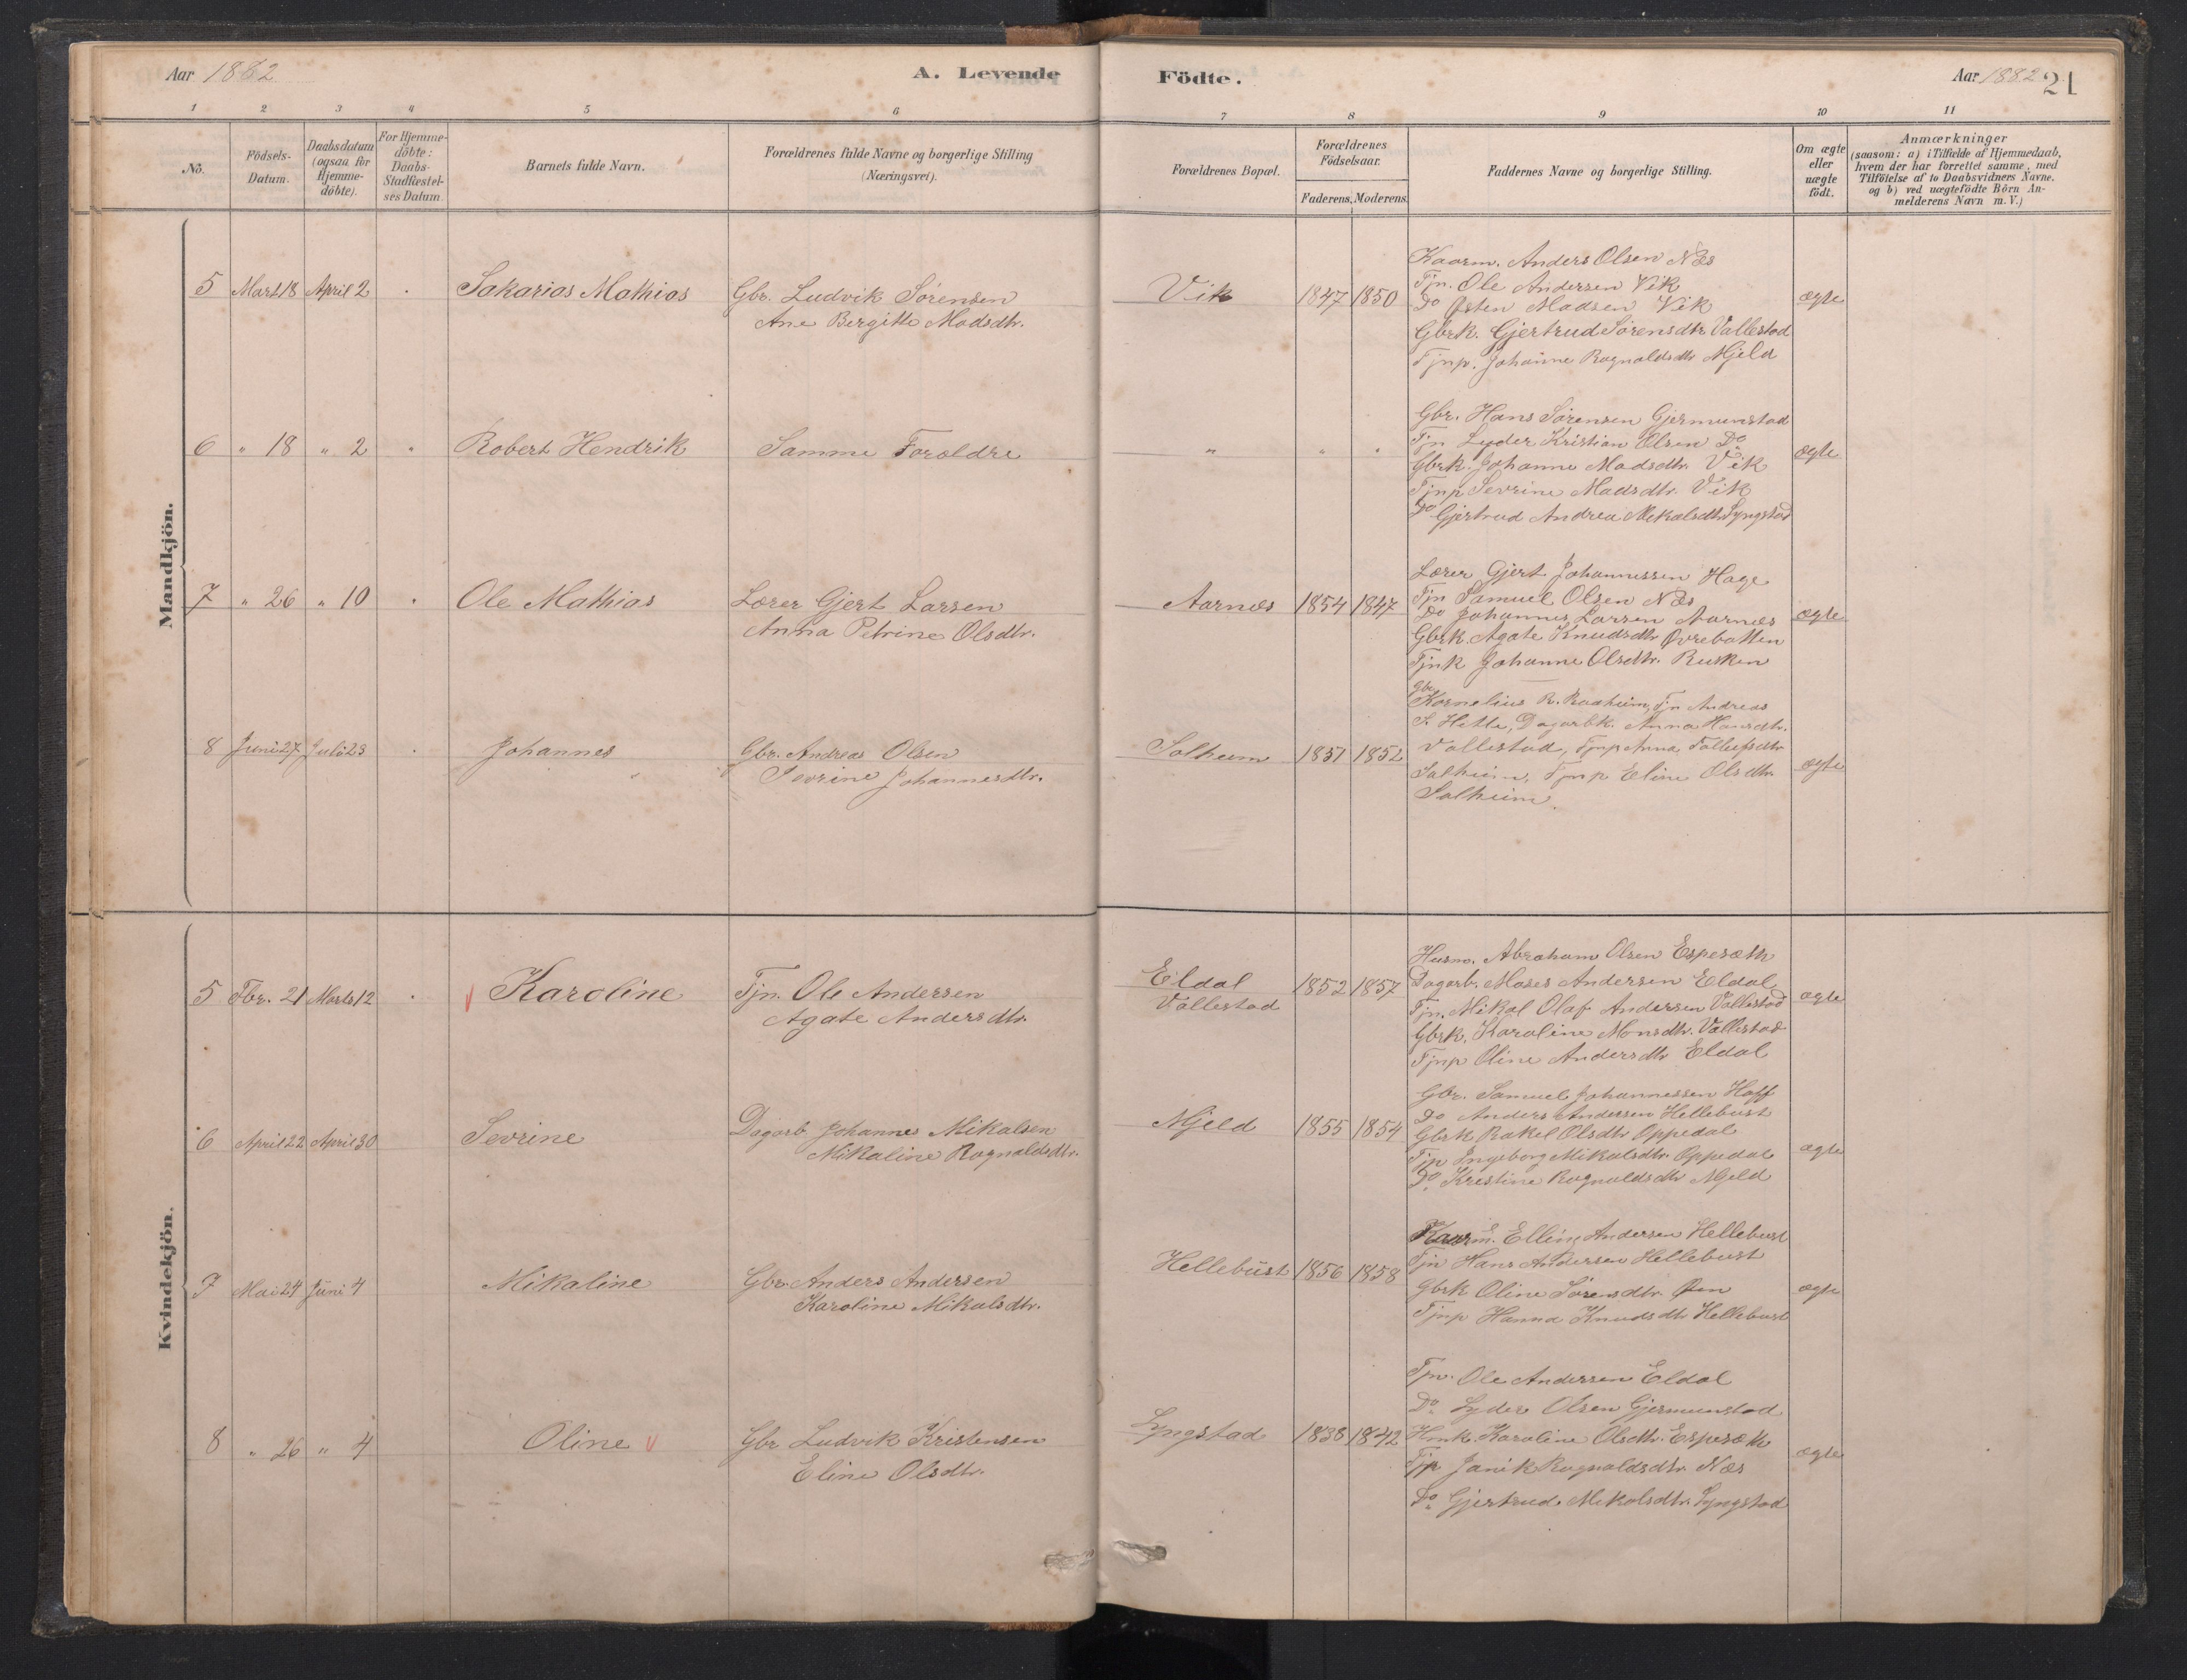 Aar 1882
A. Levende Födte.
Aar 1882 21
1 2 3 4 5 6 7 8 9 10 11
No.
Födsels-Datum.
Daabsdatum (ogsaa for Hjemme-döbte).
For Hjemme-döbte: Daabs-Stadfæstel-ses Datum
Barnets fulde Navn.
Forældrenes fulde Navne og borgerlige Stilling (Næringsvei).
Forældrenes Bopæl.
Forældrenes Födselsaar.
Faderens. Moderens.
Faddernes Navne og borgerlige Stilling.
Om ægte eller uægte födt.
Anmærkninger
(saasom: a) i Tilfælde af Hjemmedaab,
hvem der har forrettet samme, med
Tilföielse af to Daabsvidners Navne,
og b) ved uægtefödte Börn An-
melderens Navn m. V.)
Mandkjön.
5 Mart 18 April 2 Sakarias Mathias
Gbr. Ludvik Sörensen
Ane Bergitte Madsdtr.
Vik 1847 1850
Kaarm. Anders Olsen Næs
Tjn. Ole Andersen Vik
Do Østen Madsen Vik
Gbrk. Gjertrud Sørensdtr Vallestad
Tjnp. Johanne Ragnaldsdtr Mjeld
ægte
6 " 18 " 2 " Robert Hendrik
Samme Forældre
" " "
Gbr. Hans Sørensen Gjermunstad
Tjn Lyder Kristian Olsen Do
Gbrk. Johanne Madsdtr. Vik
Tjnp Sevrine Madsdtr. Vik
Do Gjertrud Andrea Mikalsdtr Lyngstad
ægte
7 " 26 " 10 " Ole Mathias
Lærer Gjert Larsen
Anna Petrine Olsdtr.
Aarnæs 1854 1847
Lærer Gjert Johannessen Hage
Tjn Samuel Olsen Næs
Do Johannes Larsen Aarnæs
Gbrk. Agate Knudsdtr Øvrebotten
Tjnk Johanne Olsdtr. Rusken
ægte
8 Juni 27 Juli 23 Johannes
Gbr. Andreas Olsen
Sevrine Johannesdtr.
Solheim 1851 1852
Gbr Kornelius R. Raaheim, Tjn Andreas
S. Hitle, Dagarbk. Anna Hansdtr.
Vallestad, Tjnp Anna Tollefsdtr
Solheim, Tjnp Eline Olsdtr.
Solheim.
ægte
Kvindekjön.
5 Fbr. 21 Marts 12 Karoline
Tjn. Ole Andersen
Agate Andersdtr.
Eldal
Vallestad
1852 1857
Husm. Abraham Olsen Espesæth
Dagarb. Moses Andersen Eldal
Tjn. Mikal Olaf Andersen Vallestad
Gbrk. Karoline Monsdtr. Vallestad
Tjnp Oline Andersdtr Eldal
ægte
6 April 22 April 30 Sevrine
Dagarb Johannes Mikalsen
Mikaline Ragnaldsdtr.
Mjeld 1855 1854
Gbr. Samuel Johannessen Hoff
Do Anders Andersen Hellebust
Gbrk Rakel Olsdtr Oppedal
Tjp Ingeborg Mikalsdtr. Oppedal
Do Kristine Ragnaldsdtr Mjeld
ægte
7 Mai 24 Juni 4 Mikaline
Gbr. Anders Andersen
Karoline Mikalsdtr.
Hellebust 1856 1858
Kaarm. Elling Andersen Hellebust
Tjn Hans Andersen Hellebust
Gbrk Oline Sörensdtr. Øen
Tjnp Hanna Knudsdtr Hellebust
ægte
8 " 26 " 4 Oline
Gbr Ludvik Kristensen
Eline Olsdtr.
Lyngstad 1838 1842
Tjn. Ole Andersen Eldal
Do. Lyder Olsen Gjermunstad
Hmk. Karoline Olsdtr. Espesæth
Tjp Janik Ragnaldsdtr. Næs
Do. Gjertrud. Mikalsdtr. Lyngstad
ægte